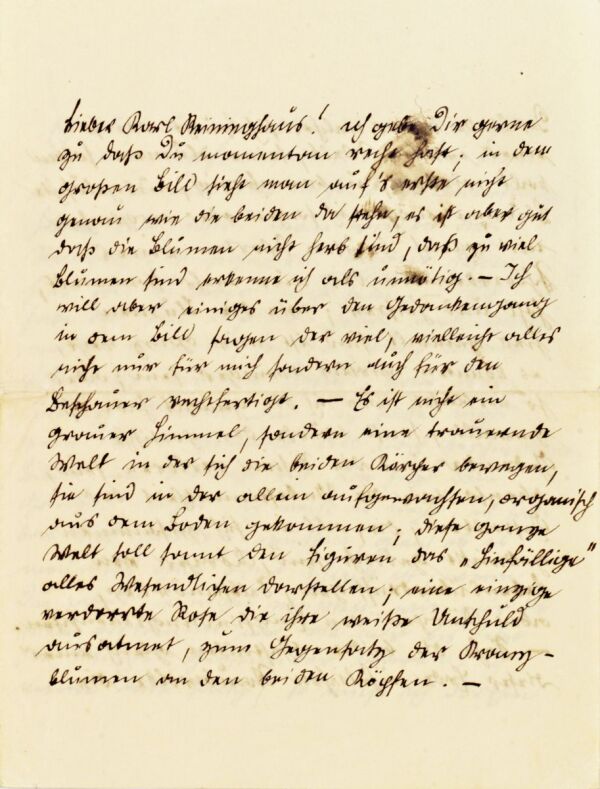 Lieber Karl Reininghaus! ich gebe Dir gerne
zu daß Du momentan recht hast; in dem
großen Bild sieht man auf's erste nicht
genau wie die beiden da stehn, es ist aber gut
daß die Blumen nicht herb sind, daß zu viel
Blumen sind erkenne ich als unnötig. – Ich
will aber einiges über den Gedankengang
in dem Bild sagen der viel, vielleicht alles
nicht nur für mich sondern auch für den
Beschauer rechtfertigt. – Es ist nicht ein
grauer Himmel, sondern eine trauernde
Welt in der sich die beiden Körper bewegen,
sie sind in der allein aufgewachsen, organisch
aus dem Boden gekommen; diese ganze
Welt soll samt den Figuren das „Hinfällige"
alles Wesendlichen darstellen; eine einzige
verdorrte Rose die ihre weiße Unschuld
ausatmet, zum Gegensatz der Kranz-
blumen an den beiden Köpfen. –